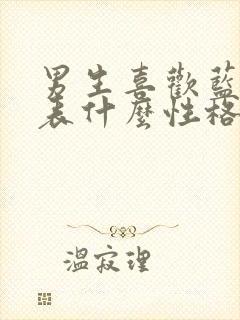 男生喜歡藍
表什麼性格
溫寂理